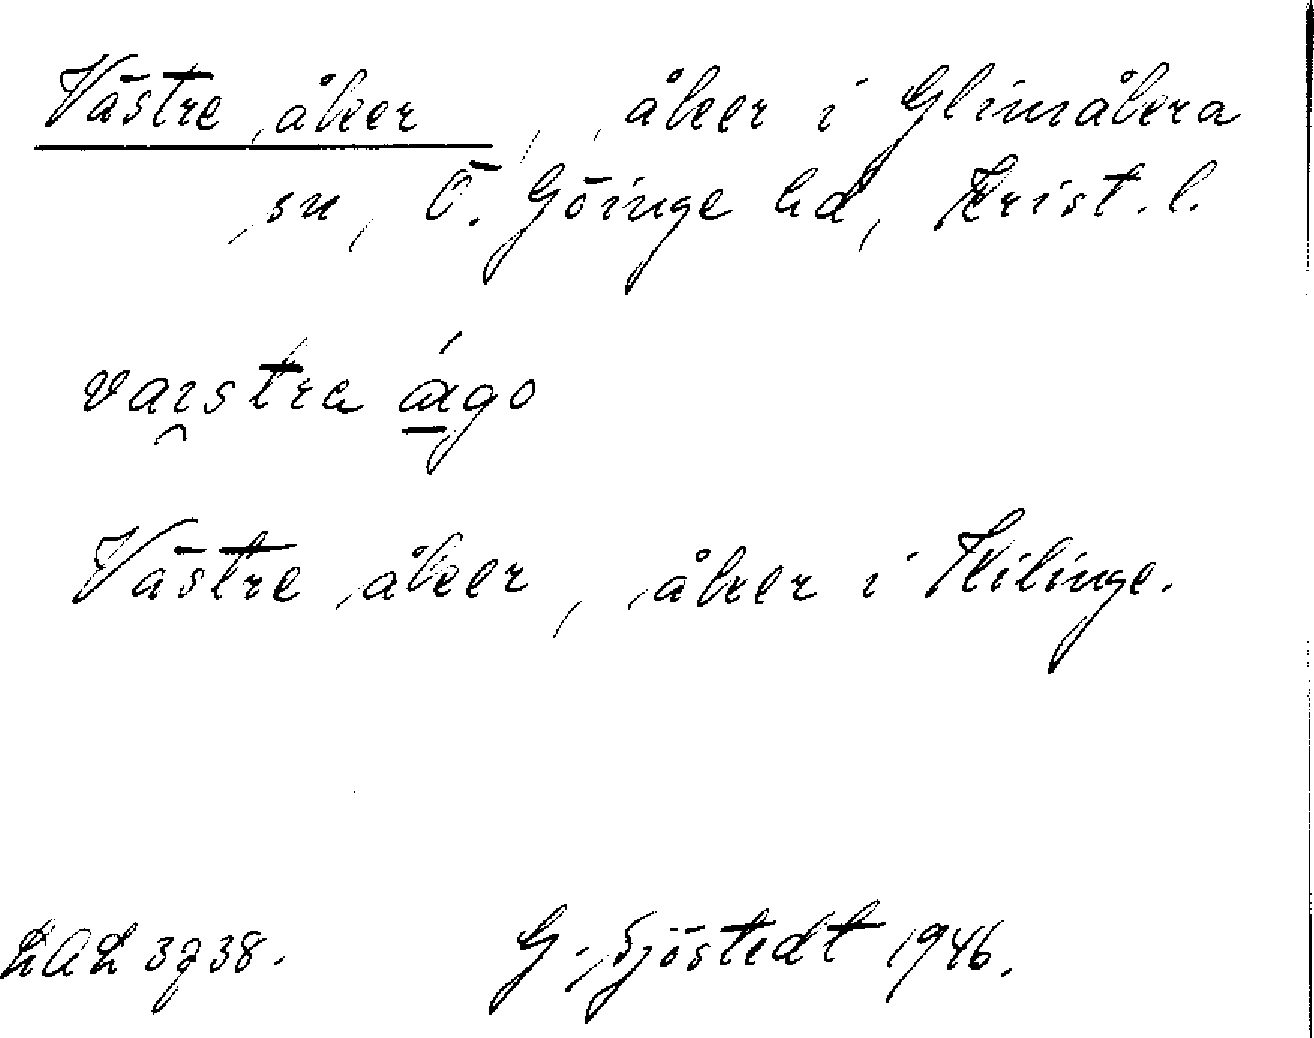 Västre åker, åker i Glimåkra
sn, Ö. Göinge hd, Krist. l.
Västre åker, åker i Kilinge.
LAL 3938. G. Sjöstedt 1946.